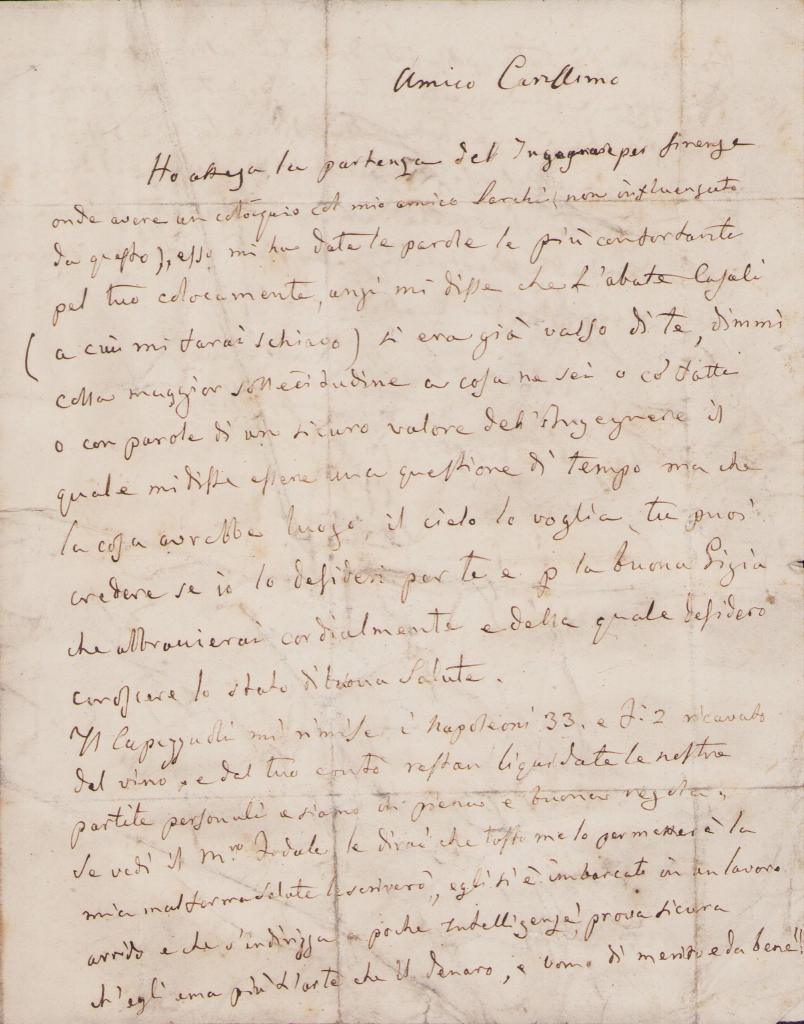 Amico Carissimo
Ho attesa la partenza del Ingegnere per Firenze
onde avere un coloquio col mio amico Sarchi (non influenzato
da questo), esso mi ha date le parole le più confortante
pel tuo colocamente, anzi mi disse che l'abate Casali
(a cui mi farai schiavo) si era già valso di te, dimmi
colla maggior sollecitudine a cosa ne sei o co' fatti
o con parole di un sicuro valore dell'Ingegnere il
quale mi disse essere una questione di tempo ma che
la cosa avrebbe luogo, il cielo lo voglia, tu puoi
credere se io lo desideri per te e p la buona Gigia
che abbraccierai cordialmente e della quale desidero
conoscere lo stato di buona salute.
Il Capezzuoli mi rimise i Napoleoni 33. e F. 2 ricavato
del vino, e dal tuo conto restan liquidate le nostre
partite personali e siamo in piena e buona regola.
Se vedi il M.ro le dirai che tosto me lo permetterà la
mia malferma salute le scriverò, egli si è imbarcato in un lavoro
arrido e che s'indirizza a poche Intelligenze, prova sicura
ch'egli ama più l'arte che il denaro, e uomo di merito e da bene!!